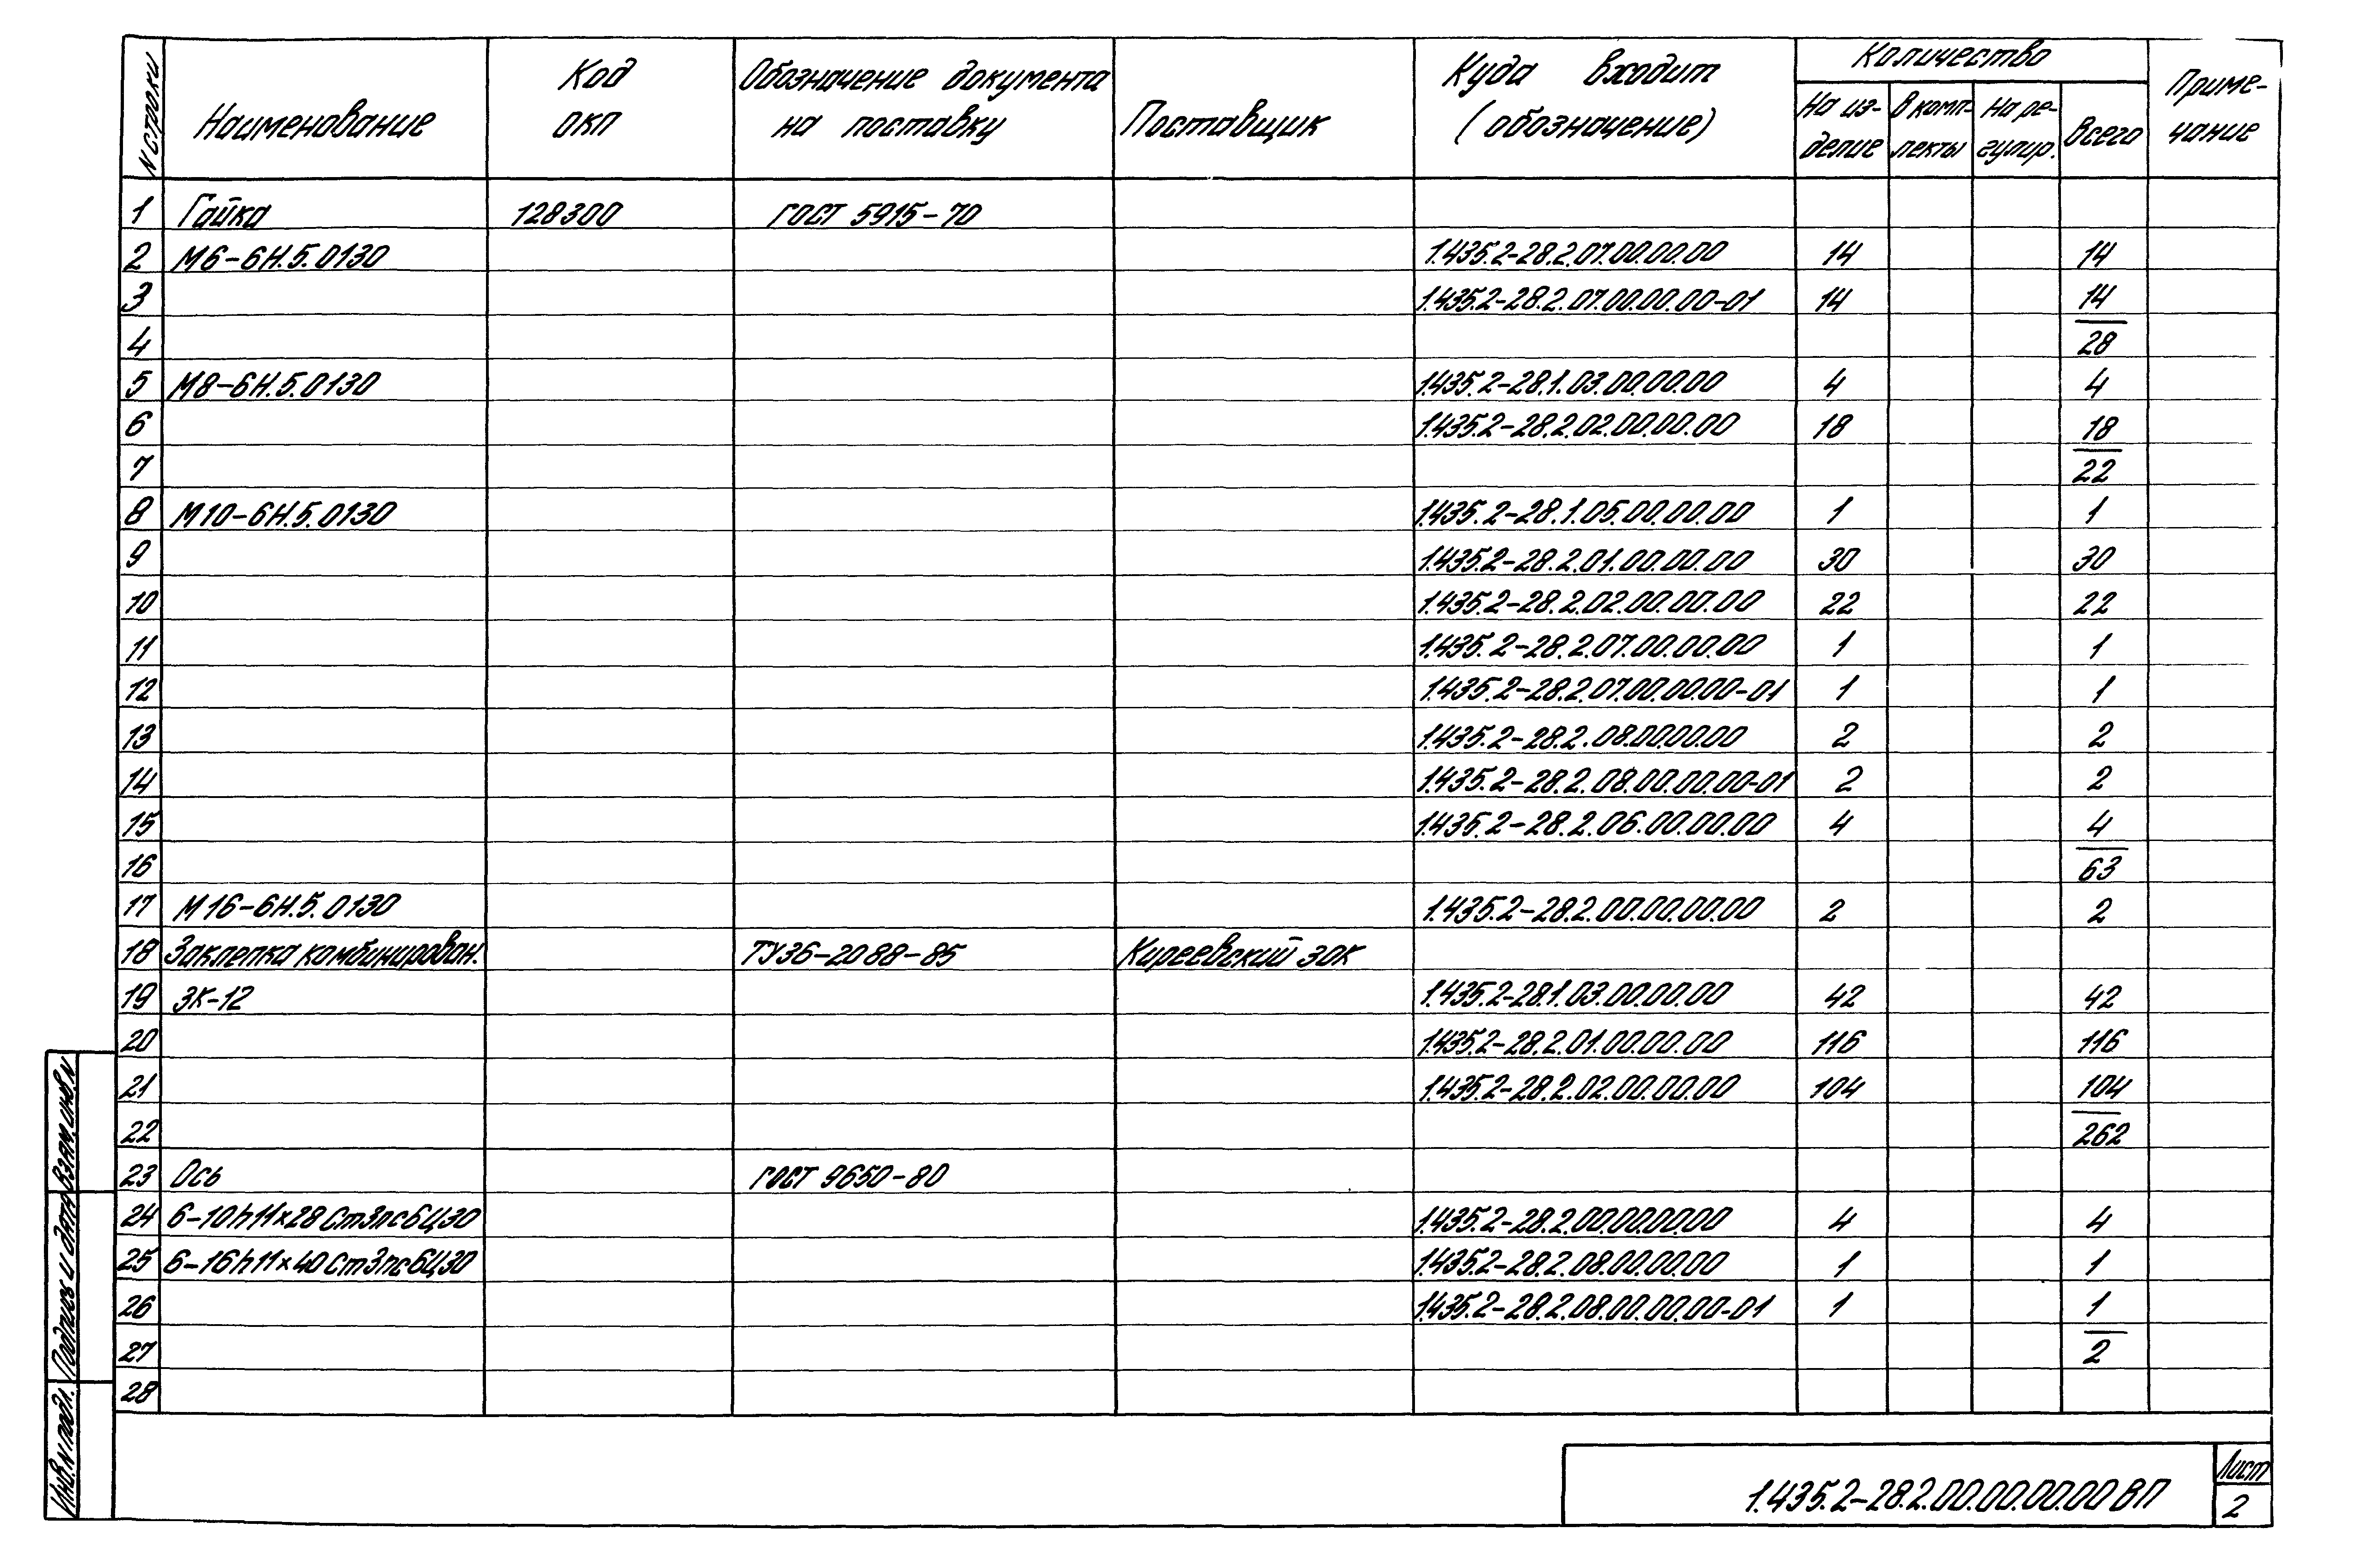 N строки Наименование Код ОКП Обозначение документа на поставку Поставщик Куда входит (обозначение) Количество На изделие В комплекты На регулир. Всего Примечание
1 Гайка 128300 ГОСТ 5915-70
2 М6-6Н.5.0130 1.435.2-28.2.07.00.00.00 14 14
3 1.435.2-28.2.07.00.00.00-01 14 14
4 28
5 М8-6Н.5.0130 1.435.2-28.1.03.00.00.00 4 4
6 1.435.2-28.2.02.00.00.00 18 18
7 22
8 М10-6Н.5.0130 1.435.2-28.1.05.00.00.00 1 1
9 1.435.2-28.2.01.00.00.00 30 30
10 1.435.2-28.2.02.00.00.00 22 22
11 1.435.2-28.2.07.00.00.00 1 1
12 1.435.2-28.2.07.00.00.00-01 1 1
13 1.435.2-28.2.08.00.00.00 2 2
14 1.435.2-28.2.08.00.00.00-01 2 2
15 1.435.2-28.2.06.00.00.00 4 4
16 63
17 М16-6Н.5.0130 1.435.2-28.2.00.00.00.00 2 2
18 Заклепка комбинирован. ТУ36-2088-85 Киреевский ЗОК
19 ЗК-12 1.435.2-28.1.03.00.00.00 42 42
20 1.435.2-28.2.01.00.00.00 116 116
21 1.435.2-28.2.02.00.00.00 104 104
22 262
23 Ось ГОСТ 9650-80
24 6-10h11×28 Ст3пс6Ц30 1.435.2-28.2.00.00.00.00 4 4
25 6-16h11×40 Ст3пс6Ц30 1.435.2-28.2.08.00.00.00 1 1
26 1.435.2-28.2.08.00.00.00-01 1 1
27 2
28
Инв.N подл. Подпись и дата Взам.инв.N
1.435.2-28.2.00.00.00.00 ВП
Лист
2